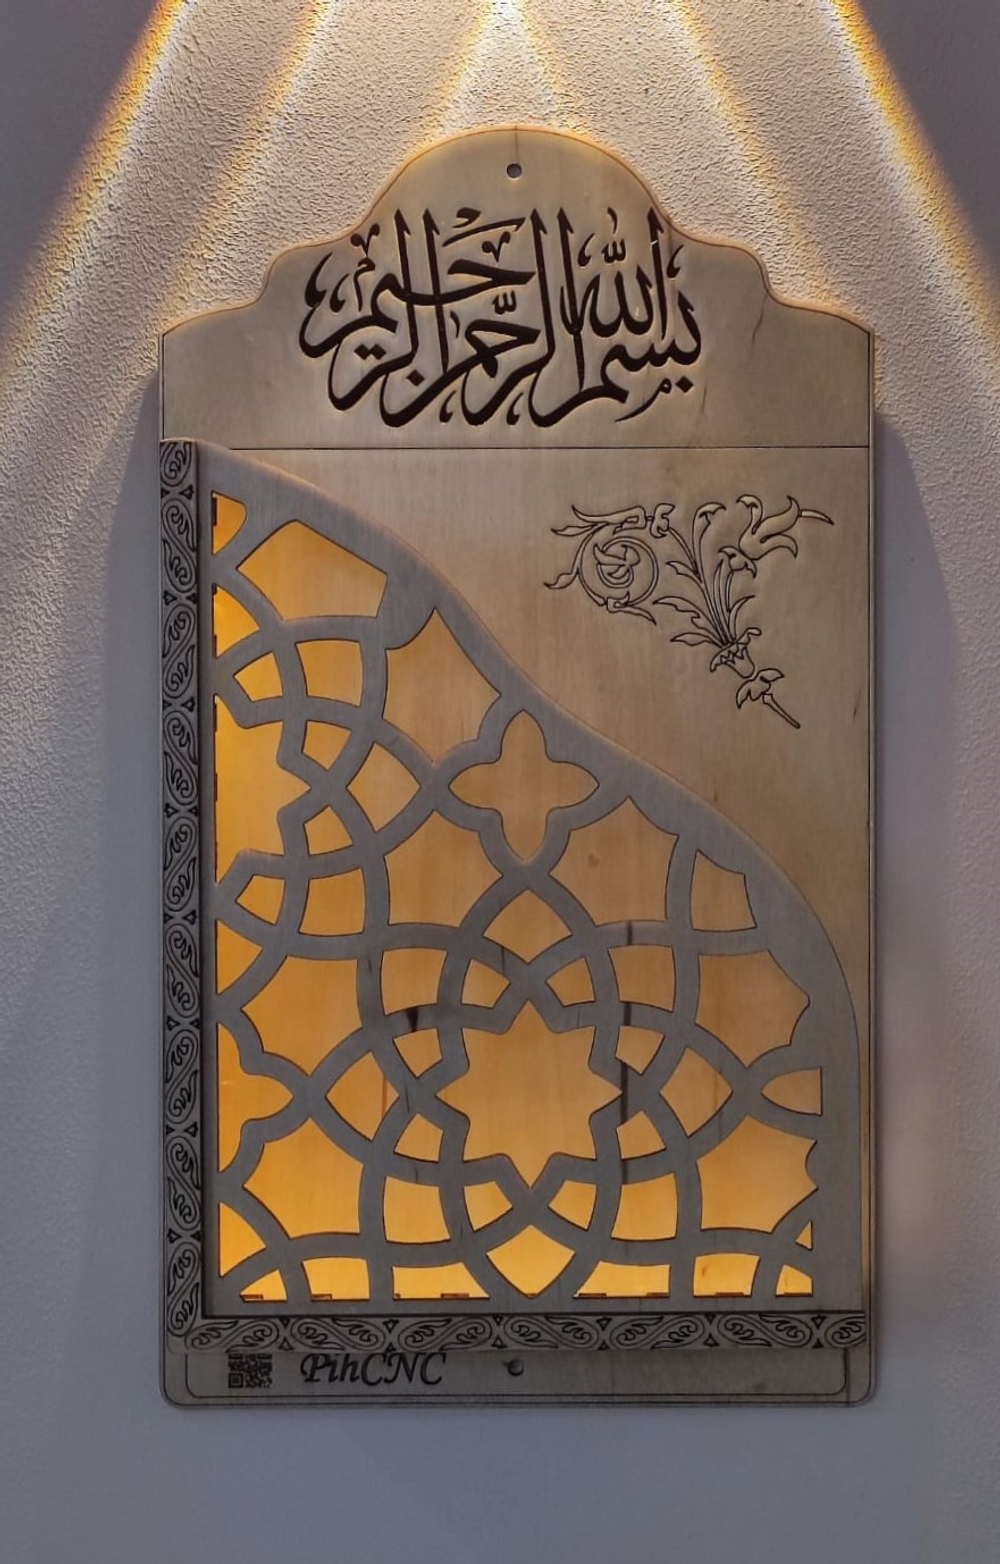 بسم الله الرحمن الرحيم
PihCNC